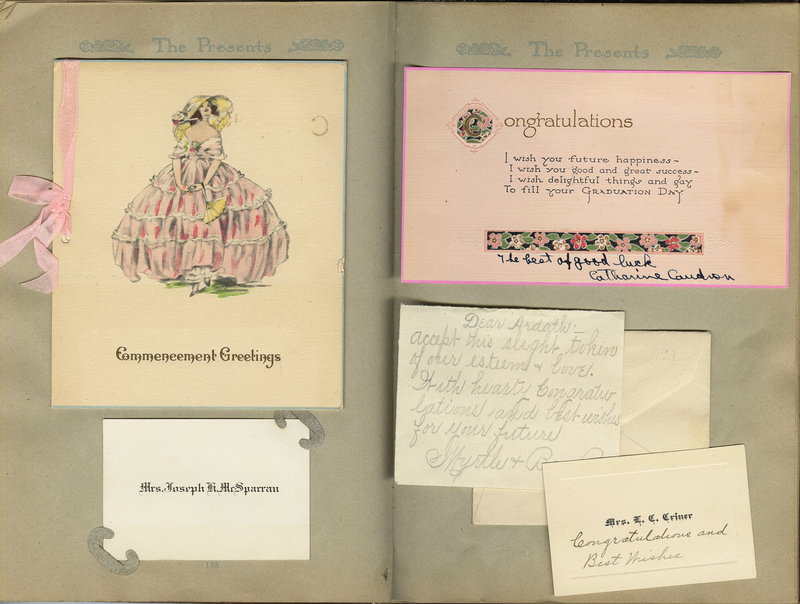 The Presents
Commencement Greetings
Mrs. Joseph H. McSparran
138
The Presents
Congratulations
I wish you future happiness-
I wish you good and great success-
I wish delightful things and gay
To fill your GRADUATION DAY
The best of good luck
Catharine Caudron
Dear Ardath-
accept this slight token
of our esteem & love.
With hearty Congratu-
lations and best wishes
for your future
Myrtle &
Mrs. L. C. Criner
Congratulations and
Best Wishes